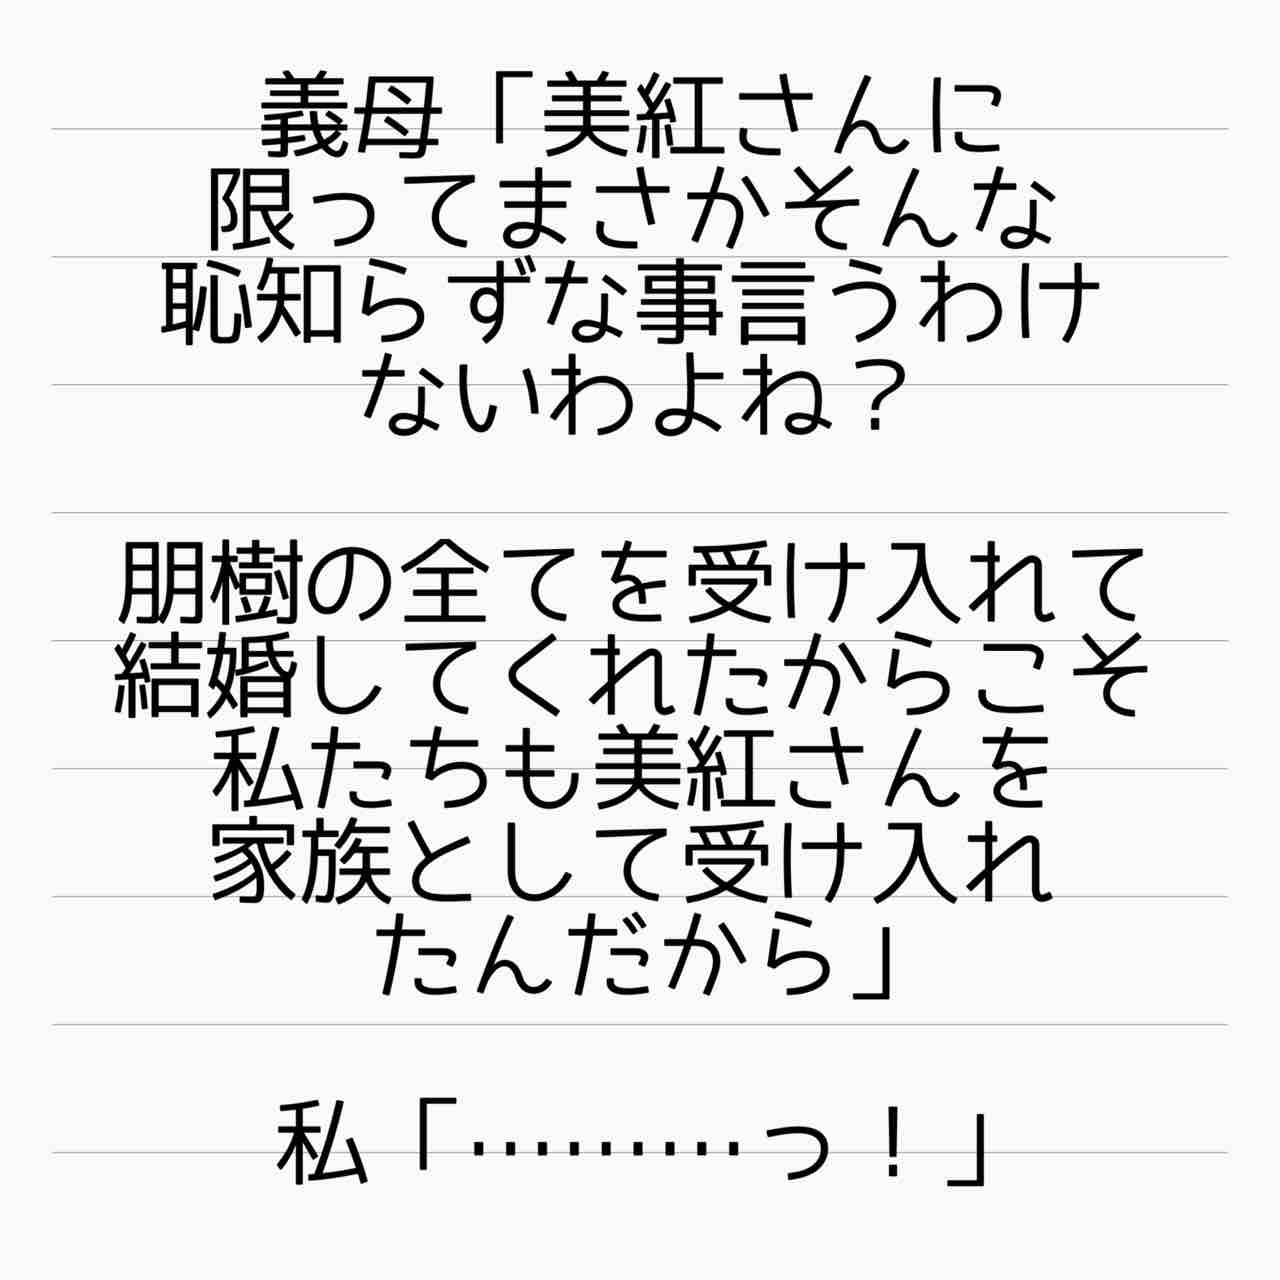 義母「美紅さんに
限ってまさかそんな
恥知らずな事言うわけ
ないわよね？
朋樹の全てを受け入れて
結婚してくれたからこそ
私たちも美紅さんを
家族として受け入れ
たんだから」
私「………っ！」